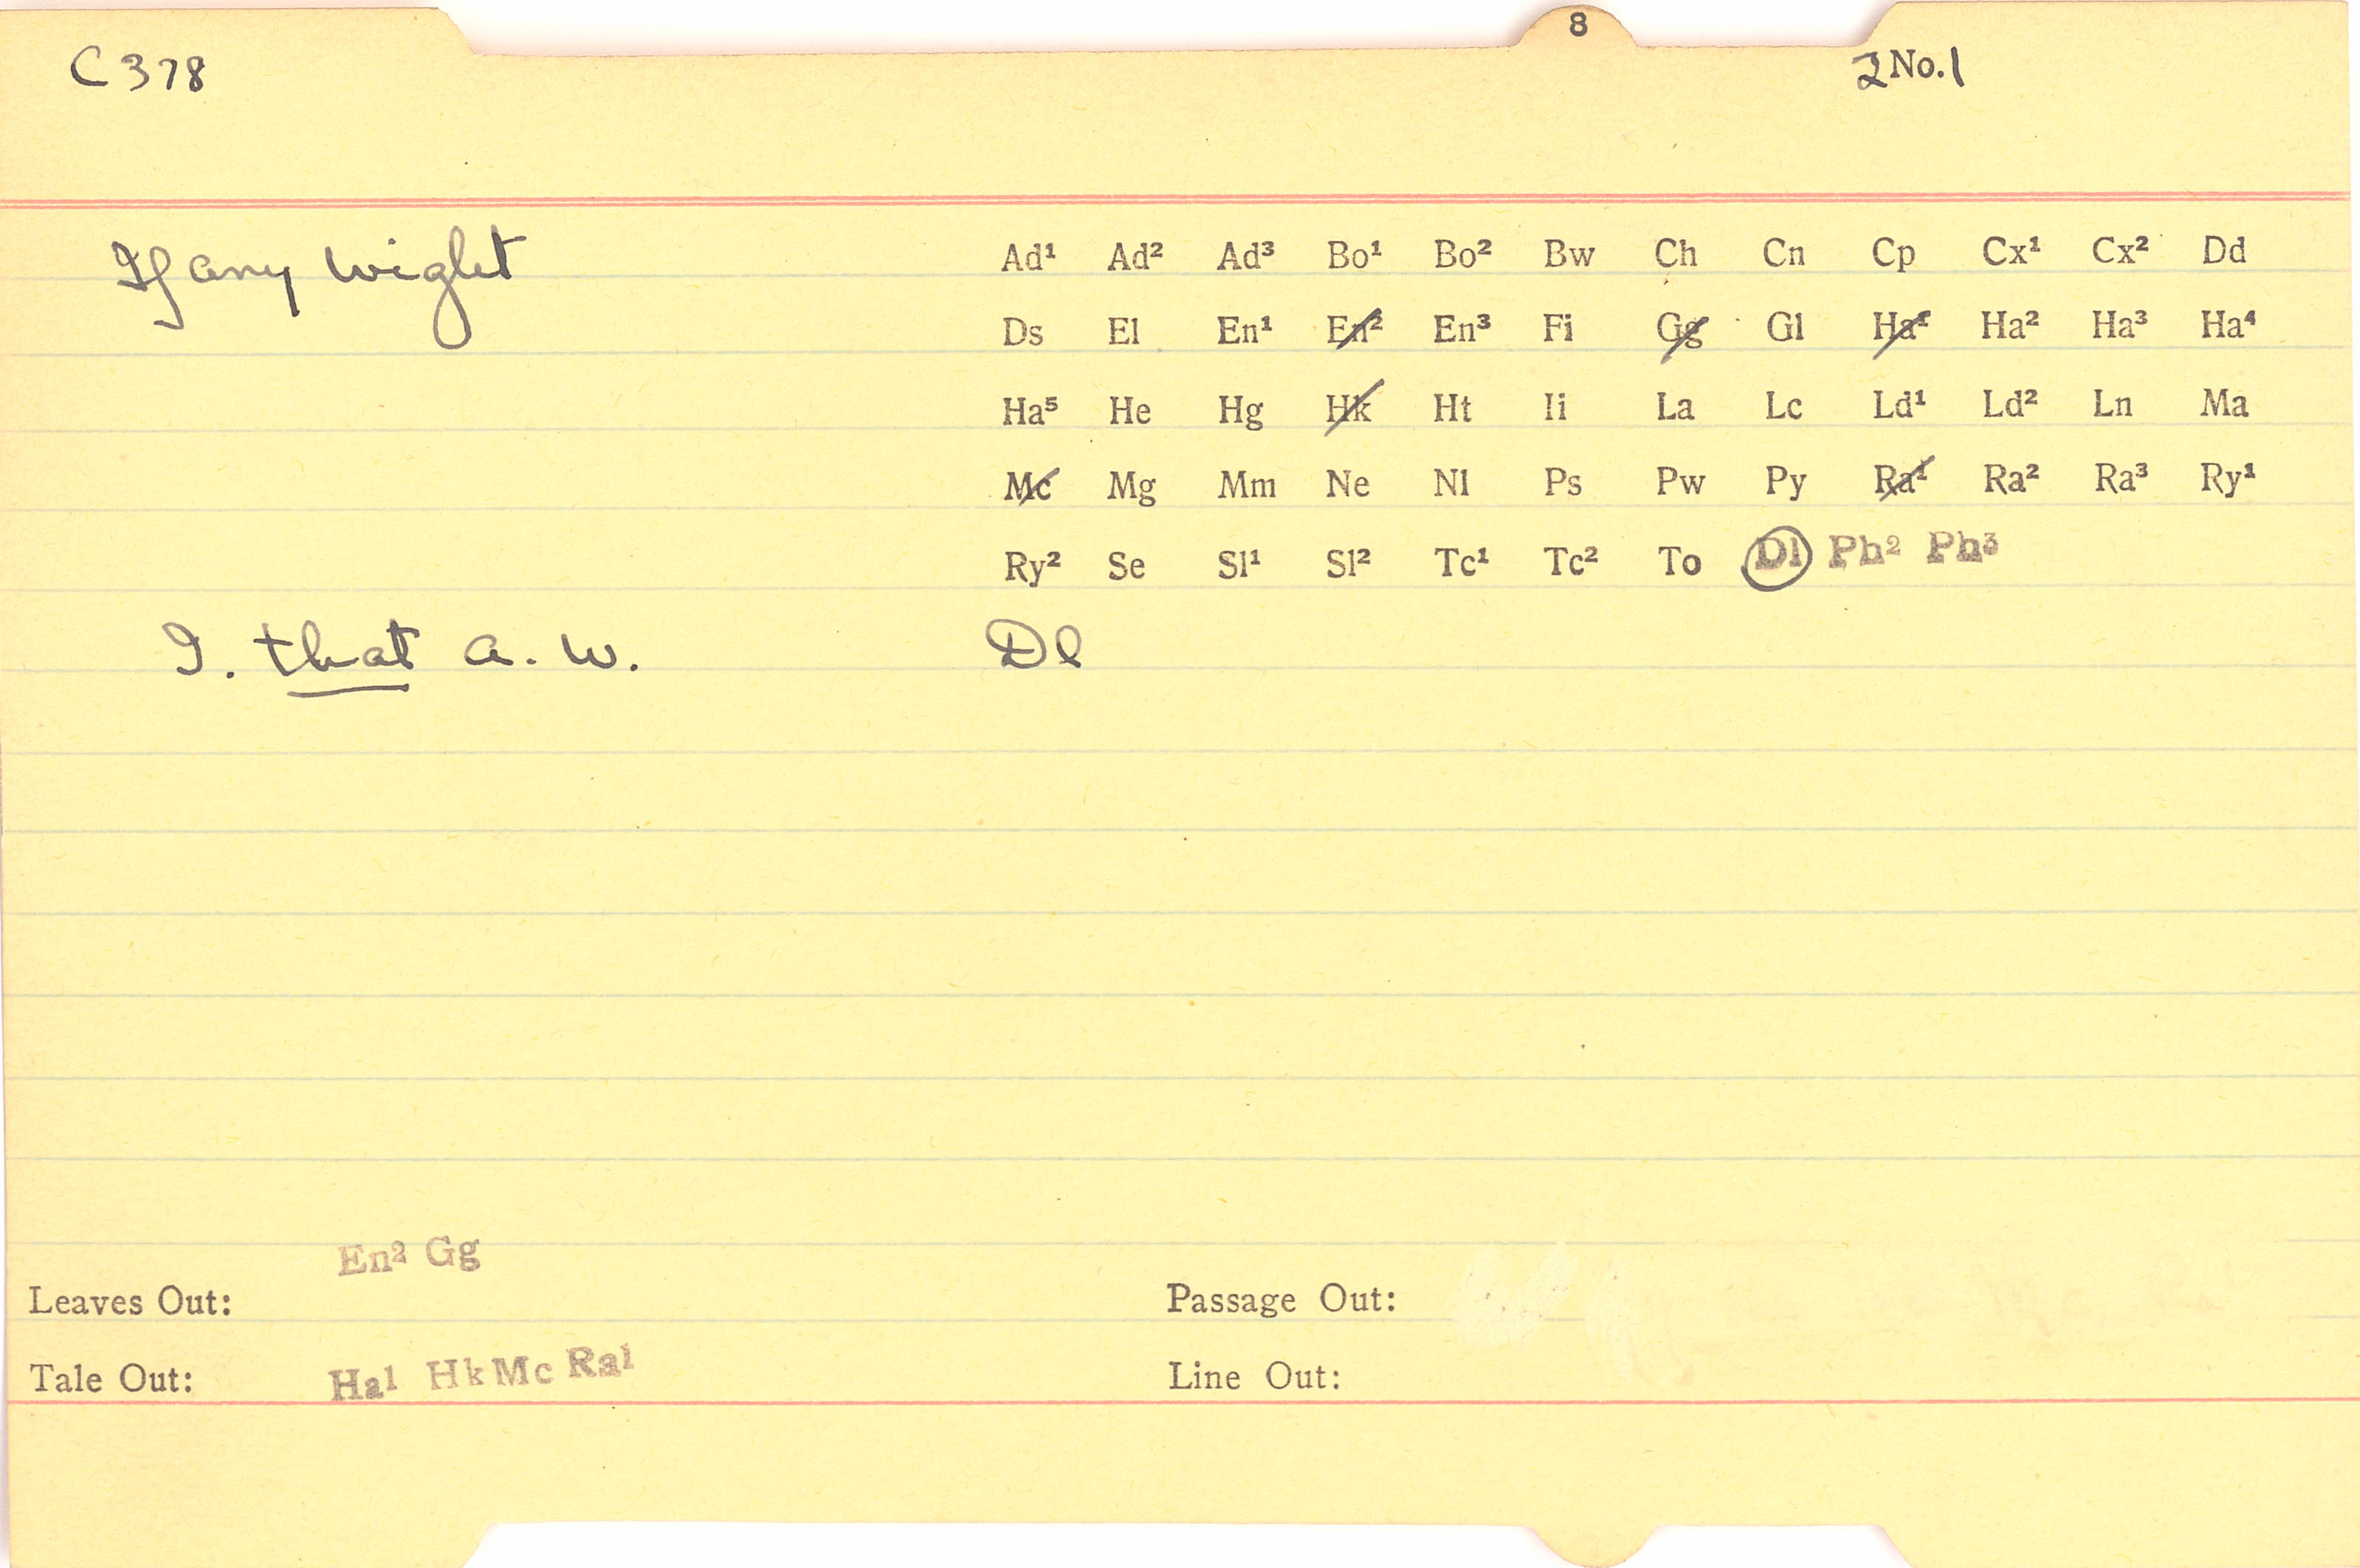 8
C 378 2 No. 1
If any wight Ad¹ Ad² Ad³ Bo¹ Bo² Bw Ch Cn Cp Cx¹ Cx² Dd
Ds El En¹ En² En³ Fi Gg Gl Ha¹ Ha² Ha³ Ha⁴
Ha⁵ He Hg Hk Ht Ii La Lc Ld¹ Ld² Ln Ma
Mc Mg Mm Ne Nl Ps Pw Py Ra¹ Ra² Ra³ Ry¹
Ry² Se Sl¹ Sl² Tc¹ Tc² To Dl Ph² Ph³
I. that a. w. Dl
En² Gg
Leaves Out: Passage Out:
Tale Out: Ha¹ Hk Mc Ra¹ Line Out: